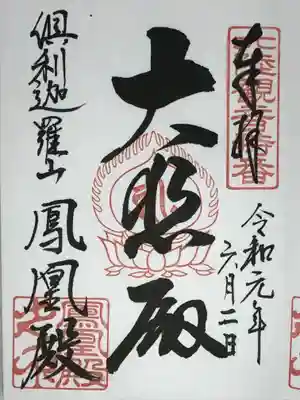 奉拝
令和元年
六月二日
大悲殿
倶利迦羅山 鳳凰殿